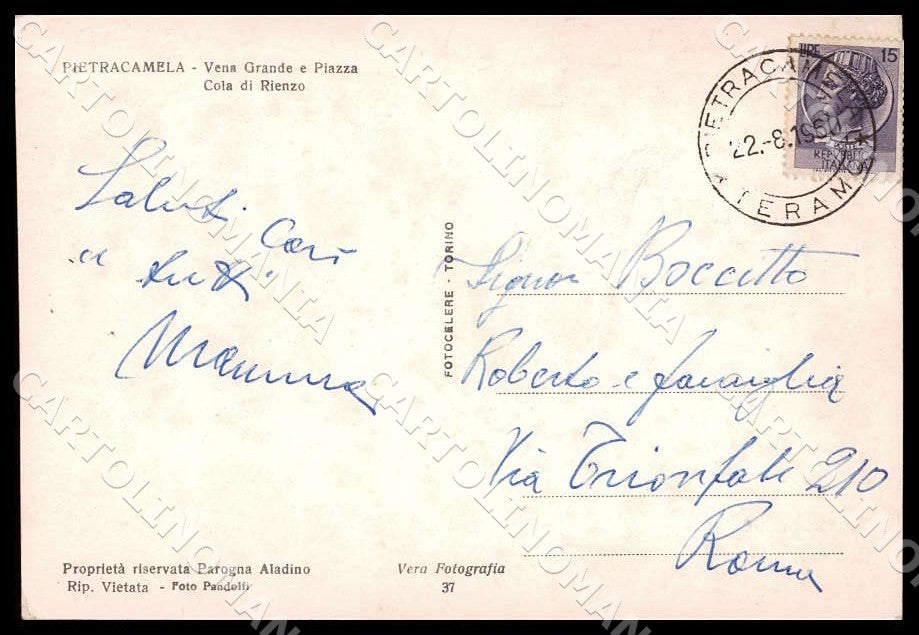 PIETRACAMELA - Vena Grande e Piazza
Cola di Rienzo
LIRE 15
REPUBBLICA
ITALIANA
PIETRACAMELA
22.-8.1960
TERAMO
Saluti cari
a tutti
Mamma
FOTOCELERE - TORINO
Signor Boccitto
Roberto e famiglia
Via Trionfale 210
Roma
Proprietà riservata Parogna Aladino
Rip. Vietata - Foto Pandolfi
Vera Fotografia
37
CARTOLINOMANIA